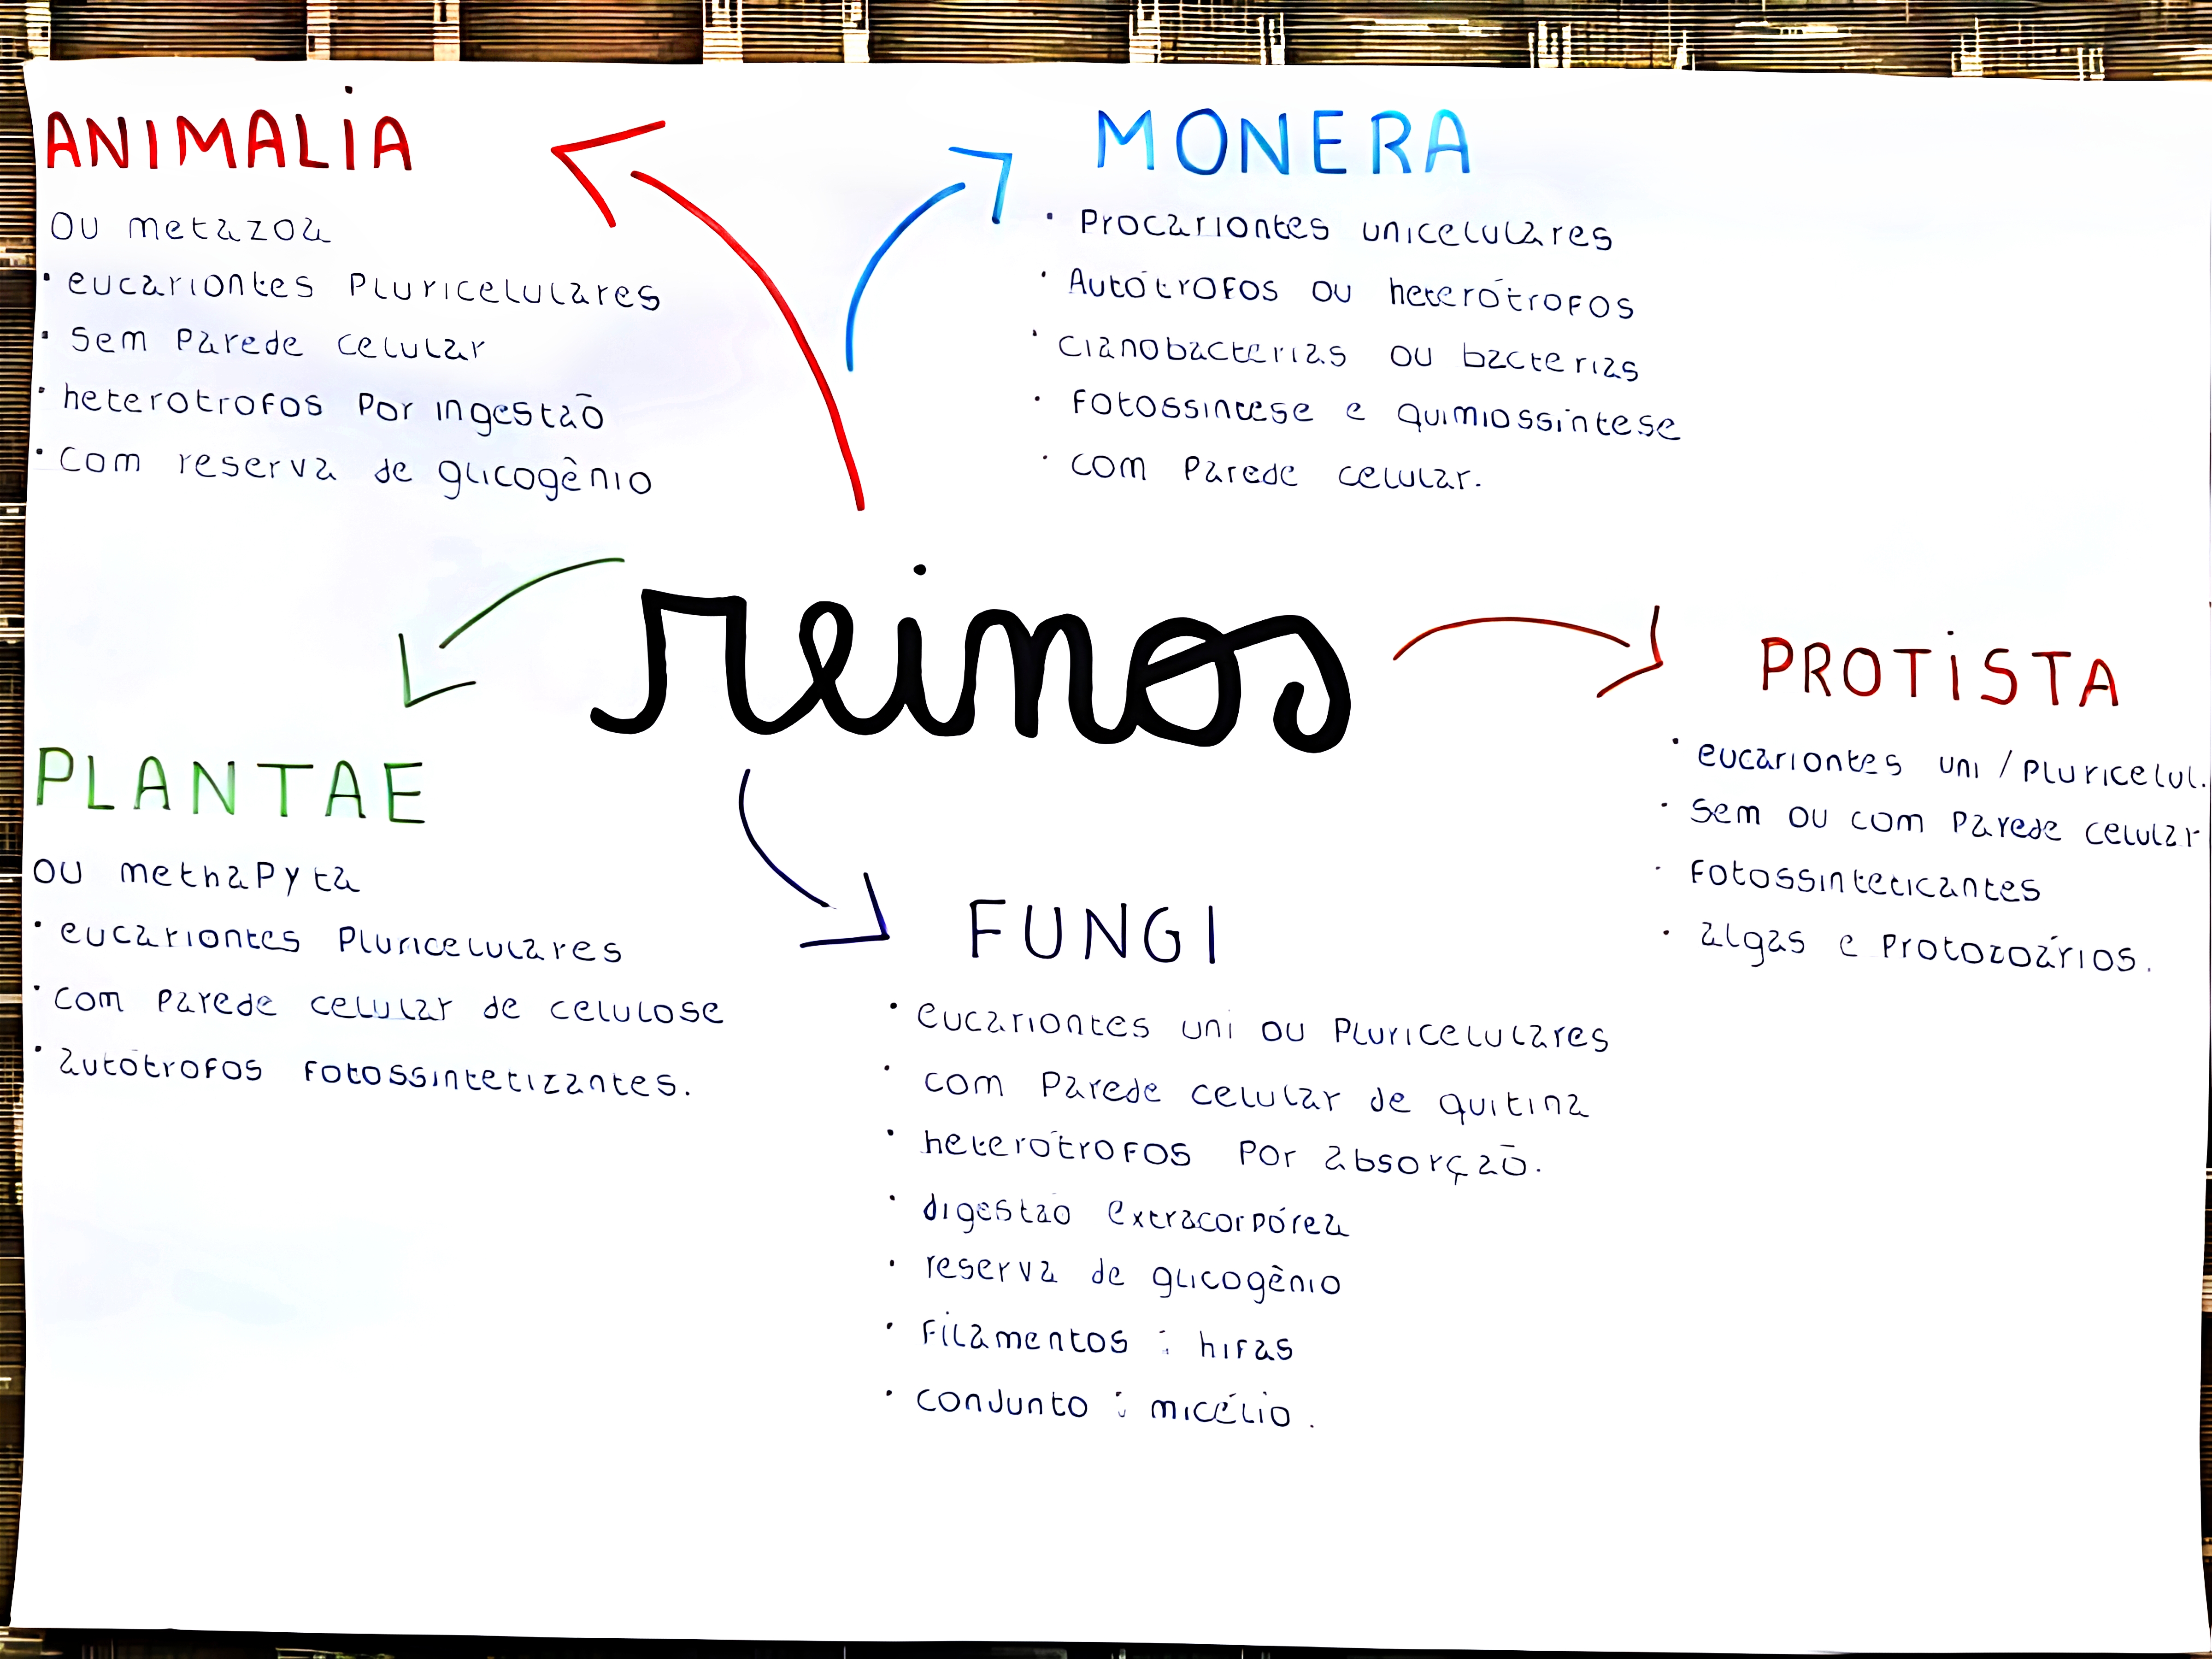 ANIMALIA
OU metazoa
• eucariontes Pluricelulares
• Sem Parede celular
• heterotrofos Por ingestão
• Com reserva de glicogênio
MONERA
• Procariontes unicelulares
• Autótrofos ou heterótrofos
• cianobacterias ou bacterias
• Fotossintese e quimiossíntese
• com Parede celular.
reinos
PROTISTA
• eucariontes uni / Pluricelul.
• Sem ou com Parede celular
• Fotossinteticantes
• algas e Protozoários.
PLANTAE
OU methaPyta
• eucariontes Pluricelulares
• Com Parede celular de celulose
• autótrofos Fotossintetizantes.
FUNGI
• eucariontes uni ou Pluricelulares
• com Parede celular de quitina
• heterótrofos Por absorção.
• digestão extracorpórea
• reserva de glicogênio
• Filamentos : hifas
• conjunto : micélio.